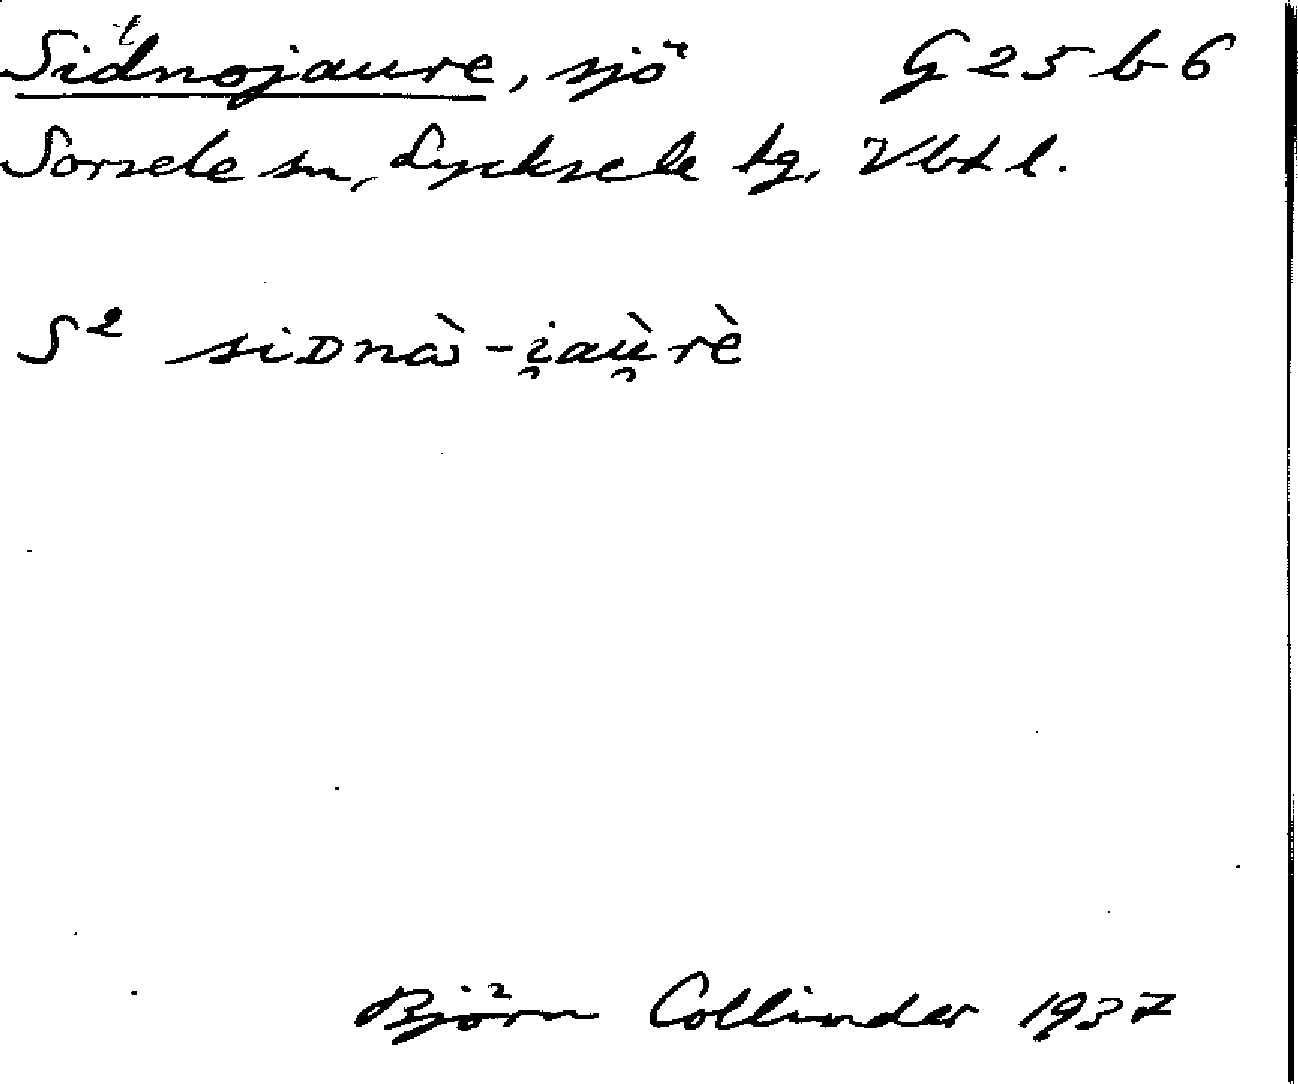 Sidnojaure, sjö G 25 b 6
Sorsele sn, Lycksele tg, Vbtl.
S² siDnὰ-i̯aù̯rè
Björn Collinder 1937